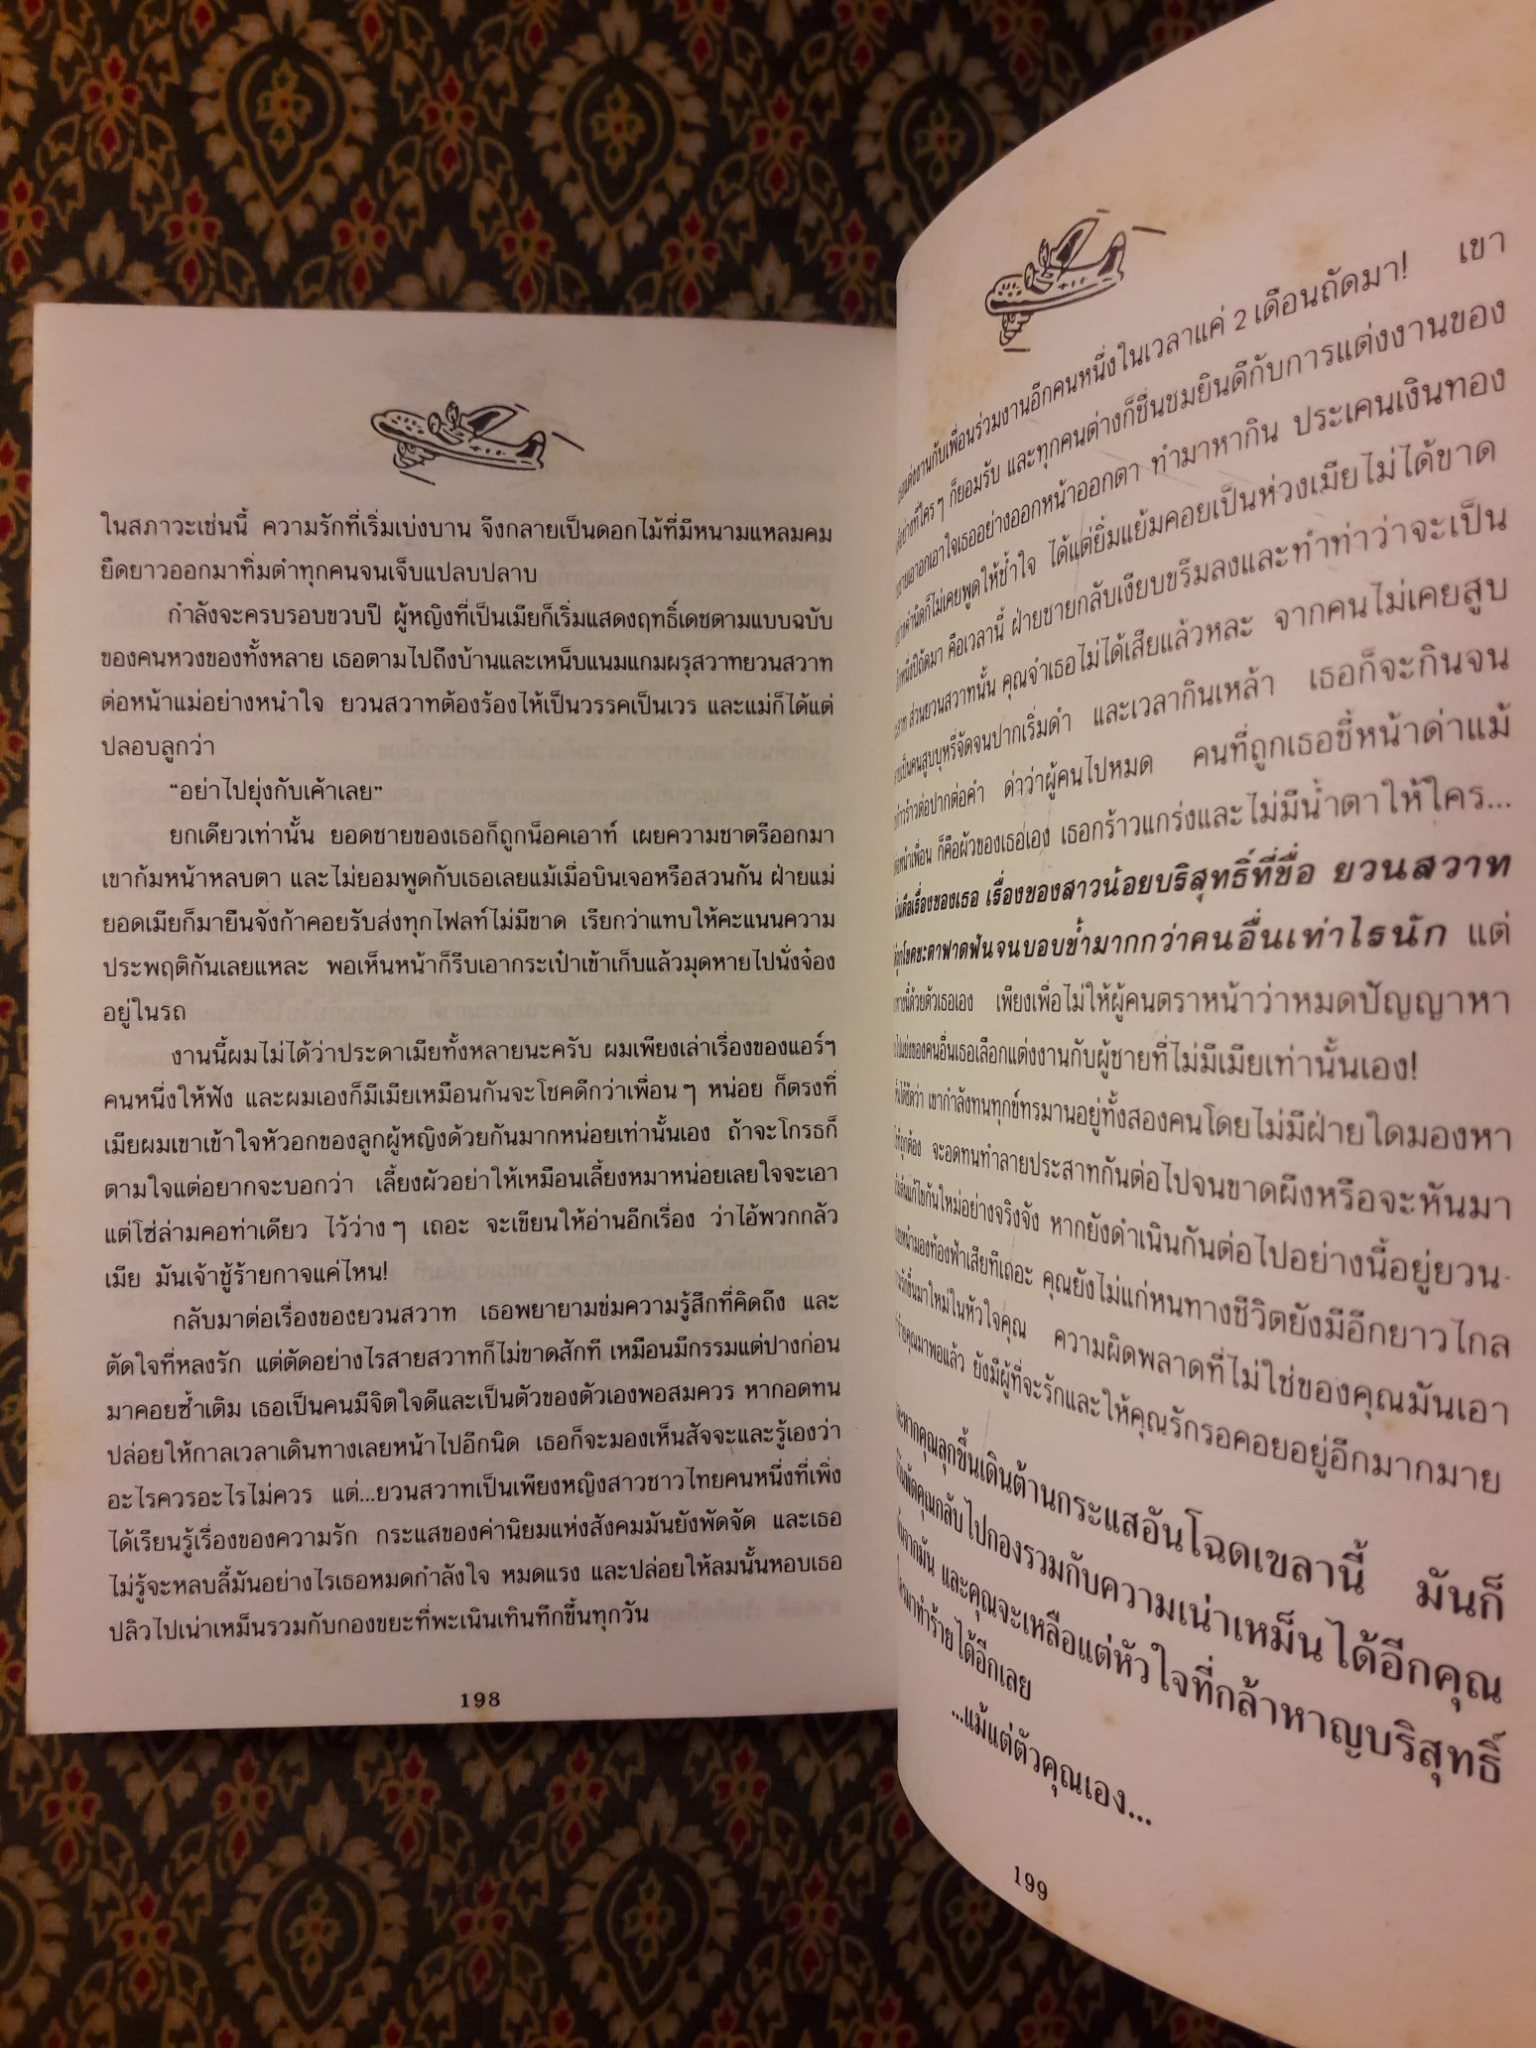 ในสภาวะเช่นนี้ ความรักที่เริ่มเบ่งบาน จึงกลายเป็นดอกไม้ที่มีหนามแหลมคม
ยืดยาวออกมาทิ่มตำทุกคนจนเจ็บแปลบปลาบ
กำลังจะครบรอบขวบปี ผู้หญิงที่เป็นเมียก็เริ่มแสดงฤทธิ์เดชตามแบบฉบับ
ของคนหวงของทั้งหลาย เธอตามไปถึงบ้านและเหน็บแนมแกมผรุสวาทยวนสวาท
ต่อหน้าแม่อย่างหนำใจ ยวนสวาทต้องร้องไห้เป็นวรรคเป็นเวร และแม่ก็ได้แต่
ปลอบลูกว่า
“อย่าไปยุ่งกับเค้าเลย”
ยกเดียวเท่านั้น ยอดชายของเธอก็ถูกน็อคเอาท์ เผยความชาตรีออกมา
เขาก้มหน้าหลบตา และไม่ยอมพูดกับเธอเลยแม้เมื่อบินเจอหรือสวนกัน ฝ่ายแม่
ยอดเมียก็มายืนจังก้าคอยรับส่งทุกไฟลท์ไม่มีขาด เรียกว่าแทบให้คะแนนความ
ประพฤติกันเลยแหละ พอเห็นหน้าก็รีบเอากระเป๋าเข้าเก็บแล้วมุดหายไปนั่งจ๋อง
อยู่ในรถ
งานนี้ผมไม่ได้ว่าประดาเมียทั้งหลายนะครับ ผมเพียงเล่าเรื่องของแอร์ฯ
คนหนึ่งให้ฟัง และผมเองก็มีเมียเหมือนกันจะโชคดีกว่าเพื่อนๆ หน่อย ก็ตรงที่
เมียผมเขาเข้าใจหัวอกของลูกผู้หญิงด้วยกันมากหน่อยเท่านั้นเอง ถ้าจะโกรธก็
ตามใจแต่อยากจะบอกว่า เลี้ยงผัวอย่าให้เหมือนเลี้ยงหมาหน่อยเลยใจจะเอา
แต่โซ่ล่ามคอท่าเดียว ไว้ว่างๆ เถอะ จะเขียนให้อ่านอีกเรื่อง ว่าไอ้พวกกลัว
เมีย มันเจ้าชู้ร้ายกาจแค่ไหน!
กลับมาต่อเรื่องของยวนสวาท เธอพยายามข่มความรู้สึกที่คิดถึง และ
ตัดใจที่หลงรัก แต่ตัดอย่างไรสายสวาทก็ไม่ขาดสักที เหมือนมีกรรมแต่ปางก่อน
มาคอยซ้ำเติม เธอเป็นคนมีจิตใจดีและเป็นตัวของตัวเองพอสมควร หากอดทน
ปล่อยให้กาลเวลาเดินทางเลยหน้าไปอีกนิด เธอก็จะมองเห็นสัจจะและรู้เองว่า
อะไรควรอะไรไม่ควร แต่...ยวนสวาทเป็นเพียงหญิงสาวชาวไทยคนหนึ่งที่เพิ่ง
ได้เรียนรู้เรื่องของความรัก กระแสของค่านิยมแห่งสังคมมันยังพัดจัด และเธอ
ไม่รู้จะหลบลี้มันอย่างไรเธอหมดกำลังใจ หมดแรง และปล่อยให้ลมนั้นหอบเธอ
ปลิวไปเน่าเหม็นรวมกับกองขยะที่พะเนินเทินทึกขึ้นทุกวัน
198
แต่งงานกับเพื่อนร่วมงานอีกคนหนึ่งในเวลาแค่ 2 เดือนถัดมา! เขา
อย่างที่ใครๆ ก็ยอมรับ และทุกคนต่างก็ชื่นชมยินดีกับการแต่งงานของ
เอาอกเอาใจเธออย่างออกหน้าออกตา ทำมาหากิน ประเคนเงินทอง
ก็ไม่เคยพูดให้ช้ำใจ ได้แต่ยิ้มแย้มคอยเป็นห่วงเมียไม่ได้ขาด
คือเวลานี้ ฝ่ายชายกลับเงียบขรึมลงและทำท่าว่าจะเป็น
ส่วนยวนสวาทนั้น คุณจำเธอไม่ได้เสียแล้วหละ จากคนไม่เคยสูบ
เป็นคนสูบบุหรี่จัดจนปากเริ่มดำ และเวลากินเหล้า เธอก็จะกินจน
ก้าวร้าวต่อปากต่อคำ ด่าว่าผู้คนไปหมด คนที่ถูกเธอชี้หน้าด่าแม้
หน้าเพื่อน ก็คือผัวของเธอเอง เธอกร้าวแกร่งและไม่มีน้ำตาให้ใคร...
คือเรื่องของเธอ เรื่องของสาวน้อยบริสุทธิ์ที่ชื่อ ยวนสวาท
โชคชะตาฟาดฟันจนบอบช้ำมากกว่าคนอื่นเท่าไรนัก แต่
ด้วยตัวเธอเอง เพียงเพื่อไม่ให้ผู้คนตราหน้าว่าหมดปัญญาหา
ของคนอื่นเธอเลือกแต่งงานกับผู้ชายที่ไม่มีเมียเท่านั้นเอง!
ได้ชัดว่า เขากำลังทนทุกข์ทรมานอยู่ทั้งสองคนโดยไม่มีฝ่ายใดมองหา
ถูกต้อง จะอดทนทำลายประสาทกันต่อไปจนขาดผึงหรือจะหันมา
แก้ไขกันใหม่อย่างจริงจัง หากยังดำเนินกันต่อไปอย่างนี้อยู่ยวน-
หน้ามองท้องฟ้าเสียทีเถอะ คุณยังไม่แก่หนทางชีวิตยังมีอีกยาวไกล
รักขึ้นมาใหม่ในหัวใจคุณ ความผิดพลาดที่ไม่ใช่ของคุณมันเอา
คุณมาพอแล้ว ยังมีผู้ที่จะรักและให้คุณรักรอคอยอยู่อีกมากมาย
หากคุณลุกขึ้นเดินต้านกระแสอันโฉดเขลานี้ มันก็
พัดคุณกลับไปกองรวมกับความเน่าเหม็นได้อีกคุณ
จากมัน และคุณจะเหลือแต่หัวใจที่กล้าหาญบริสุทธิ์
มาทำร้ายได้อีกเลย
...แม้แต่ตัวคุณเอง...
199